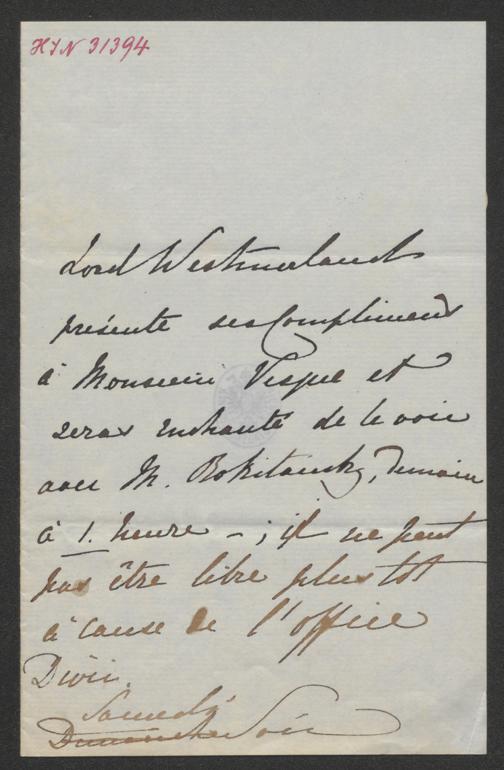 HIN 31394
Lord Westmorland
présente ses Compliments
à Monsieur Vesque et
serax enchanté de le voir
avec M. Rokitansky, demain
à 1. heure – ; il ne peut
pas être libre plus tôt
à cause de l'office
Divin.
Samedi
Dimanche Soir